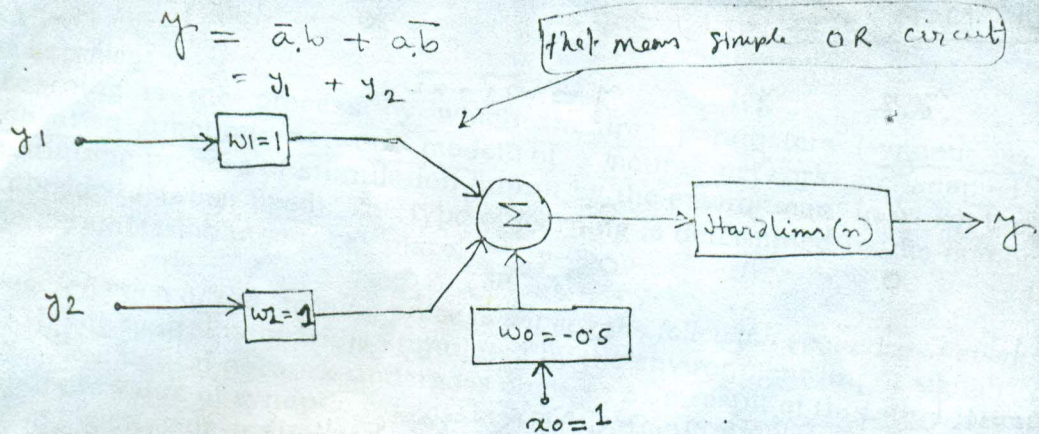 y = a̅.b + a.b̅
= y1 + y2
that means simple OR circuit
y1
w1=1
Σ
Hardlims(n)
y
y2
w2=1
w0=-0.5
x0=1